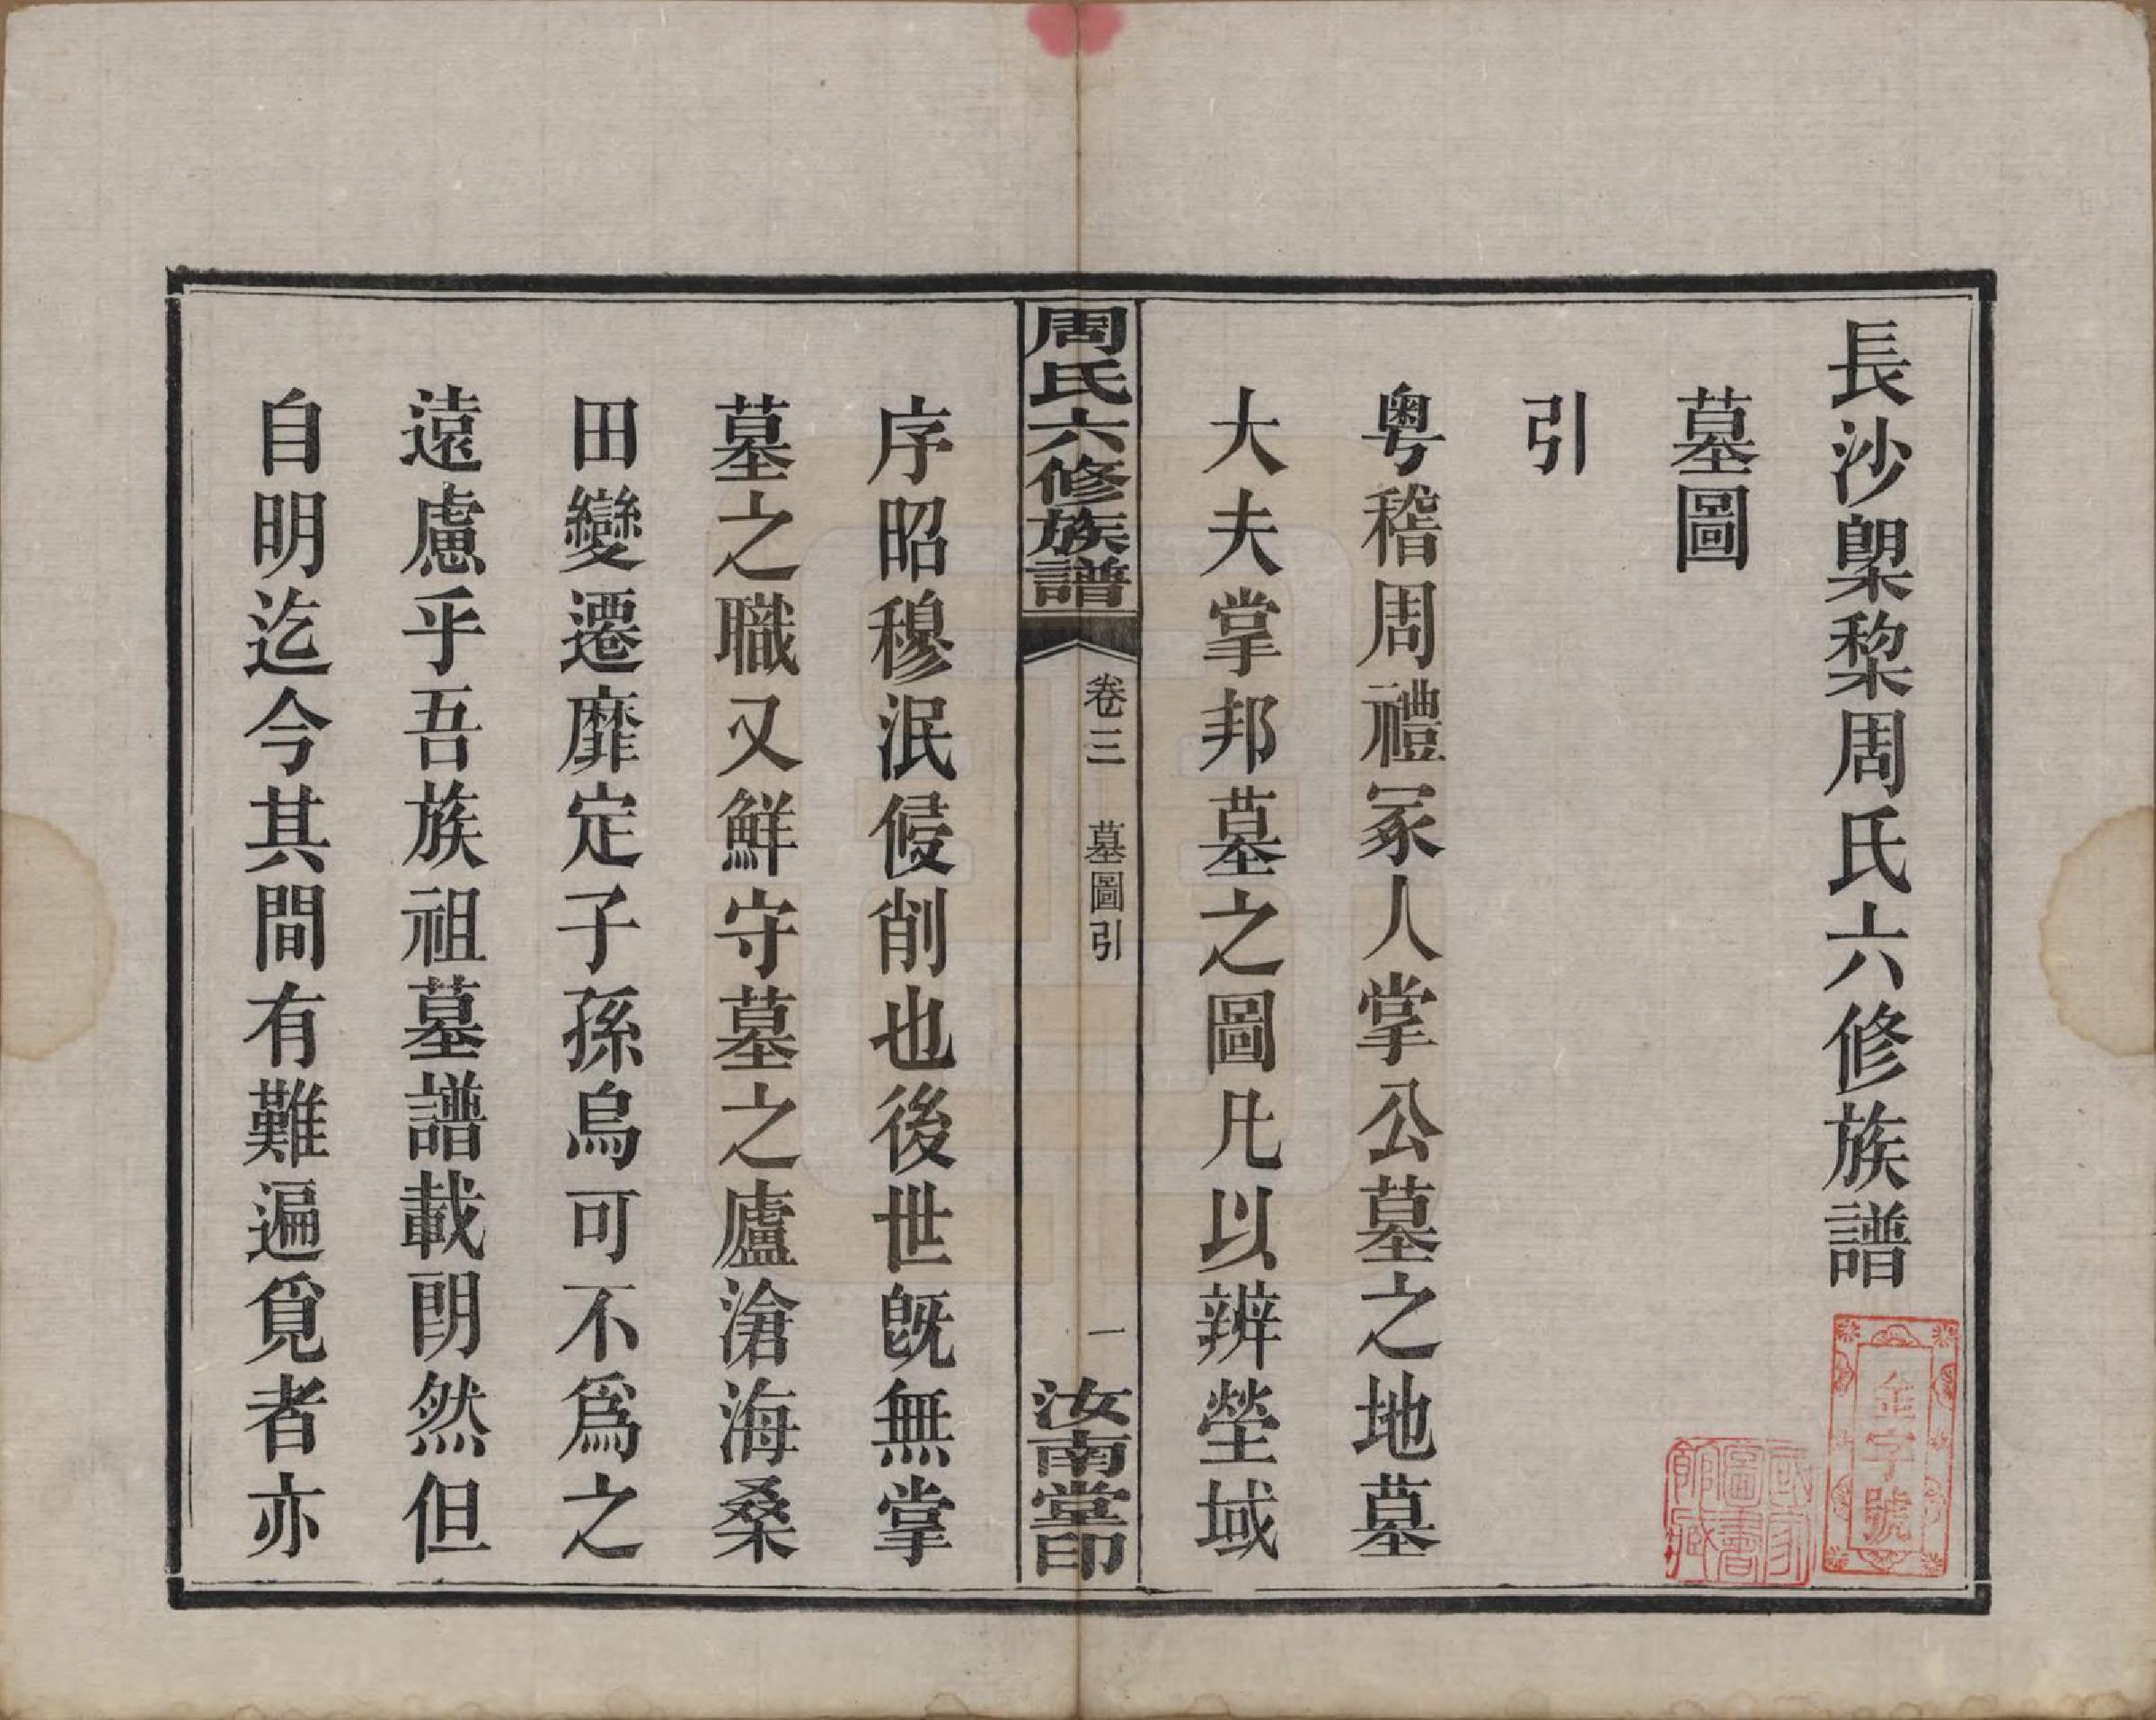 長沙㮚棃周氏六修族譜
墓圖
引
粤稽周禮冢人掌公墓之地墓
大夫掌邦墓之圖凡以辨塋域
周氏六修族譜
卷三 墓圖引
一
汝南堂印
序昭穆泯侵削也後世旣無掌
墓之職又鮮守墓之廬滄海桑
田變遷靡定子孫烏可不爲之
遠慮乎吾族祖墓譜載朗然但
自明迄今其間有難遍覓者亦
金字號
國家
圖書
館藏